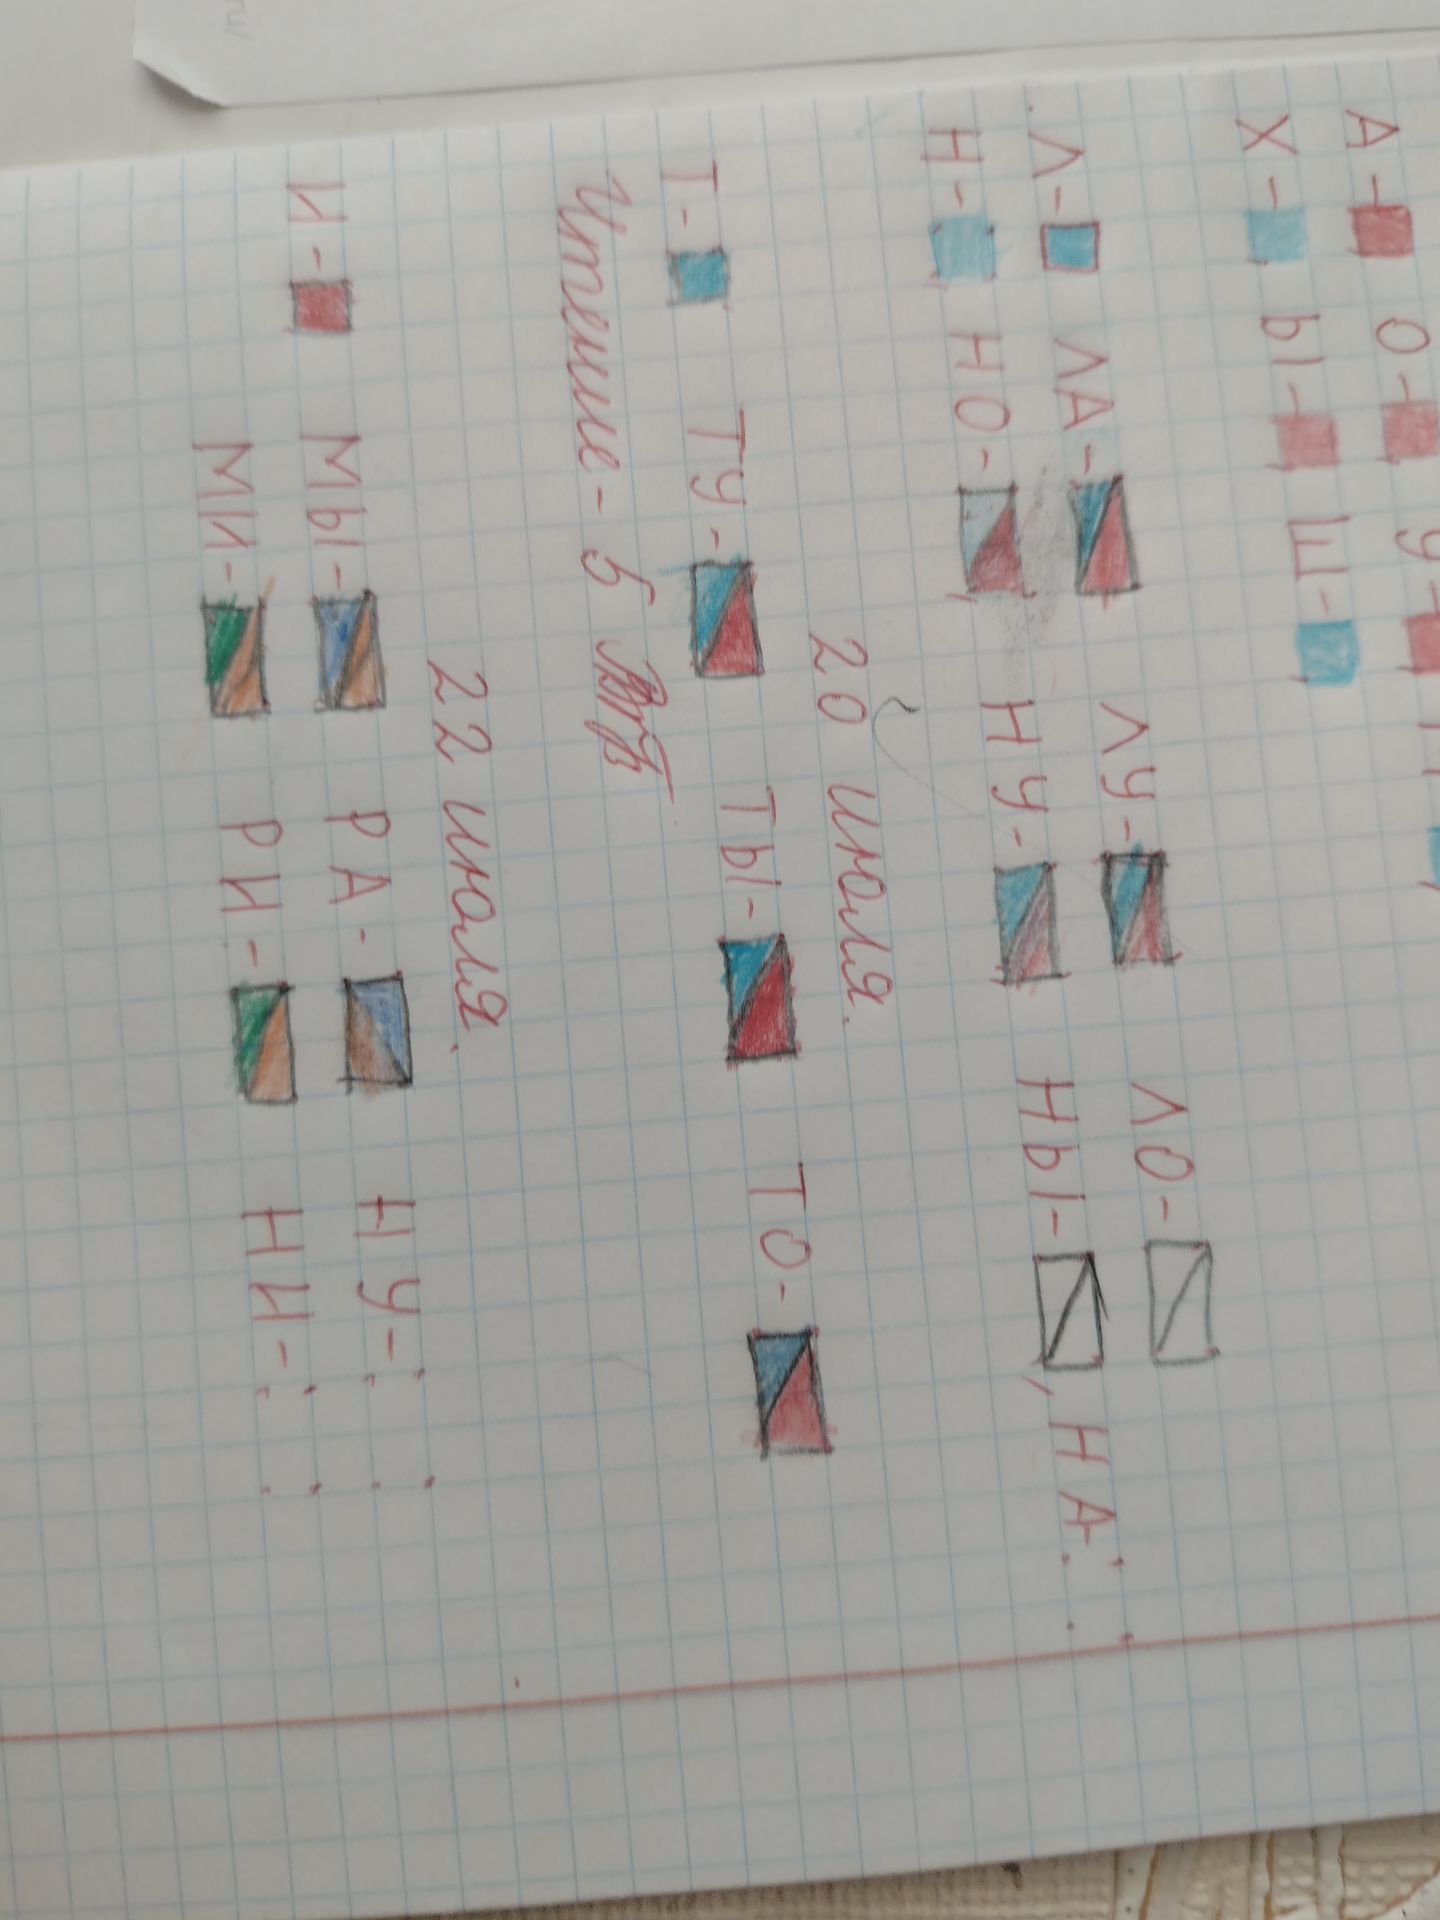 А - О - У -
Х - Ы - Ш -
Л - ЛА - ЛУ - ЛО -
Н - НО - НУ - НЫ - , НА
20 июля.
Т - ТУ - ТЫ - ТО -
Чтение - 5
22 июля.
И - МЫ - РА - НУ -
МИ - РИ - НИ -